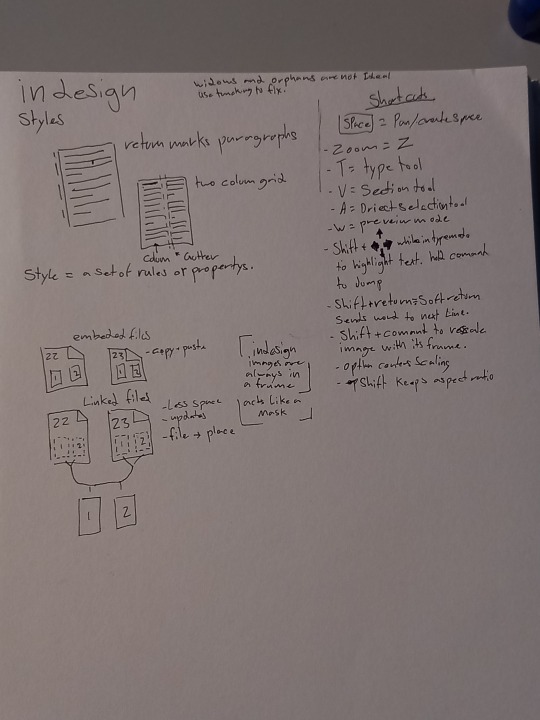 indesign
Styles
widows and orphans are not Ideal
use tracking to fix.
return marks paragraphs
two colum grid
Colum Gutter
Style = a set of rules or propertys.
embeded files
22
1 2
23
1 2
-copy + paste
indesign
images are
always in
a frame
acts Like a
Mask
Linked files
22
1 2
23
1 2
-Less space
-updates
-file → place
1 2
Shortcuts
Space = Pan/create space
-Zoom = Z
-T = type tool
-V = Section tool
-A = Driect selection tool
-w = preveiw mode
-Shift + while in type mode
to highlight text. hold comand
to Jump
-Shift+return=Soft return
Sends word to next Line.
-Shift+comand to rescale
image with its frame.
-option centers Scaling
-Shift Keeps aspect ratio